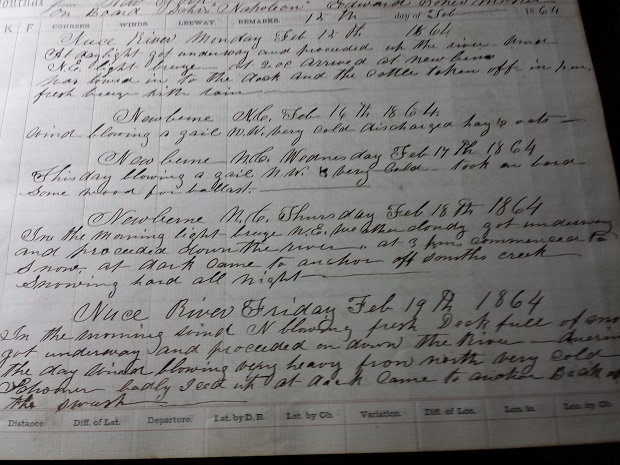 Journal from New York
on Board Schr "Napoleon" Edward Jones Master
K F COURSES. WINDS. LEEWAY. REMARKS. 12th day of Feb 1864
Nuce River Monday Feb 12th 1864
At daylight got underway and proceeded up the river wind
N.E. light breeze at 2 oc arrived at New bern
was towed in to the dock and the cattle taken off in p.m.
fresh breeze with rain
Newberne N.C. Feb 16th 1864.
wind blowing a gail N.W. very cold discharged hay & oats
Newberne N.C. Wednesday Feb 17th 1864
This day blowing a gail N.W. & very cold took on bord
some wood for ballast.
Newberne N.C. Thursday Feb 18th 1864
In the morning light breeze N.E. weather cloudy got underway
and proceded down the river at 3 pm commenced to
snow, at dark came to anchor off smiths creek
snowing hard all night
Nuce River Friday Feb 19th 1864
In the morning wind N blowing fresh Deck full of sno
got underway and proceded on down the River
the day wind blowing very heavy from north very cold
Schooner badly Iced up at dark came to anchor Back of
the swash
Distance. Diff. of Lat. Departure. Lat. by D. R. Lat. by Ob. Variation. Diff. of Lon. Lon. in. Lon. by Ch.